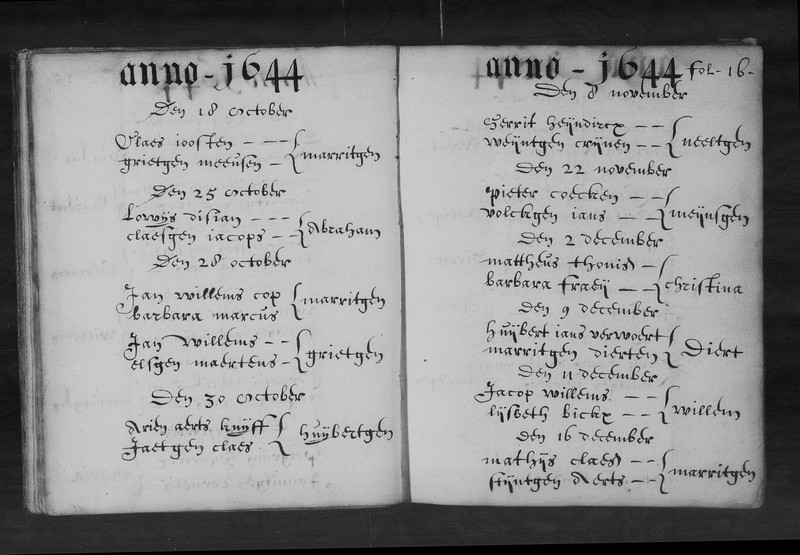 anno - 1644
Den 18 October
Claes joosten - - -
grietgen meeusen - { marritgen
Den 25 October
Lowijs disian - - -
claesgen jacops - - { Abraham
Den 28 october
Jan willems cop
barbara marcus { marritgen
Jan Willems - -
elsgen maertens - { grietgen
Den 30 October
Arien aerts knijff
Jaetgen claes { huijbertgen
anno - 1644 fol - 16 -
Den 8 november
Gerrit heijndircx - -
weijntgen crijnen - - { neeltgen
Den 22 november
pieter coecken - -
volckgen jans - - { meijnsgen
Den 2 december
mattheus thonis -
barbara fraeij - - { christina
Den 9 december
huijbert jans verwoert
marritgen dierten { Diert
Den 11 december
Jacop willems - -
lijsbeth bickx - - { willem
Den 16 december
mathijs claes - -
stijntgen Aerts - - { marritgen